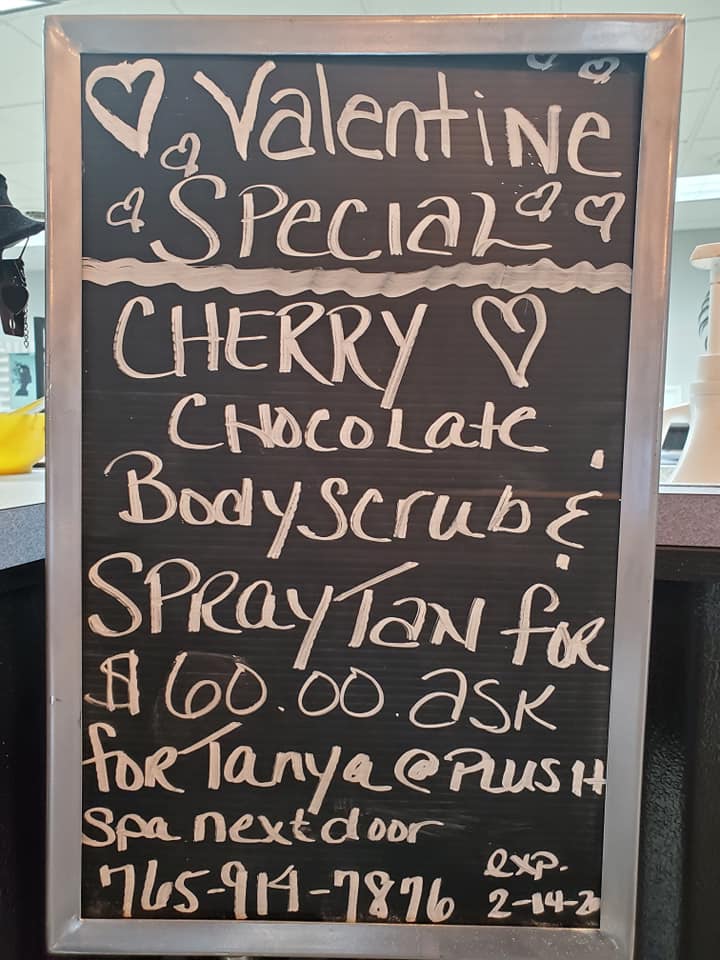 Valentine
Special
CHERRY
CHOCOLate
Body Scrub &
SPRay Tan for
$60.00. ask
for Tanya @ PLUSH
Spa next door
765-914-7876
exp.
2-14-20